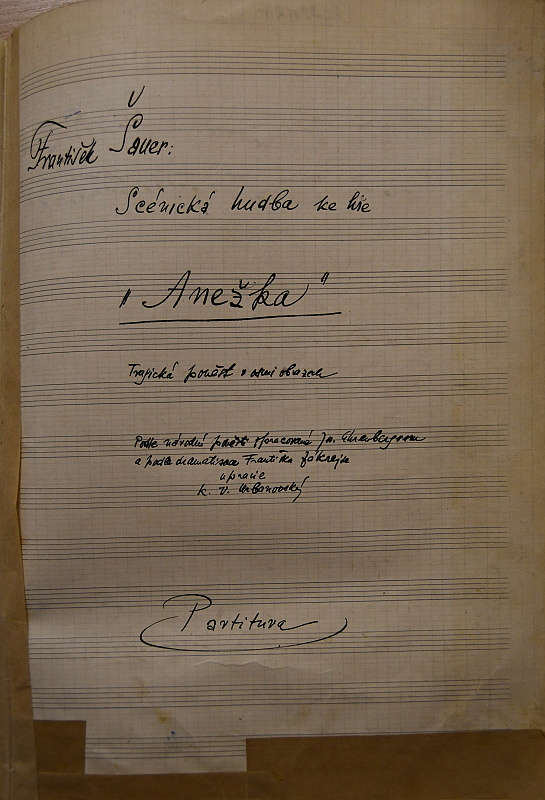 František Šauer:
Scénická hudba ke hře
„Anežka"
Tragická pověst v osmi obrazech
Podle národní pověsti zpracované Jn. Ehrenbergrem
a podle dramatisace Františka Zákrejse
upravil
K. V. Urbanovský
Partitura